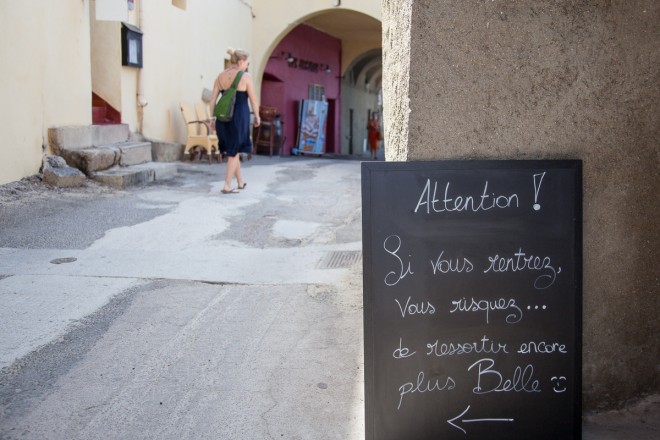 Attention !
Si vous rentrez,
vous risquez...
de ressortir encore
plus Belle :)
←